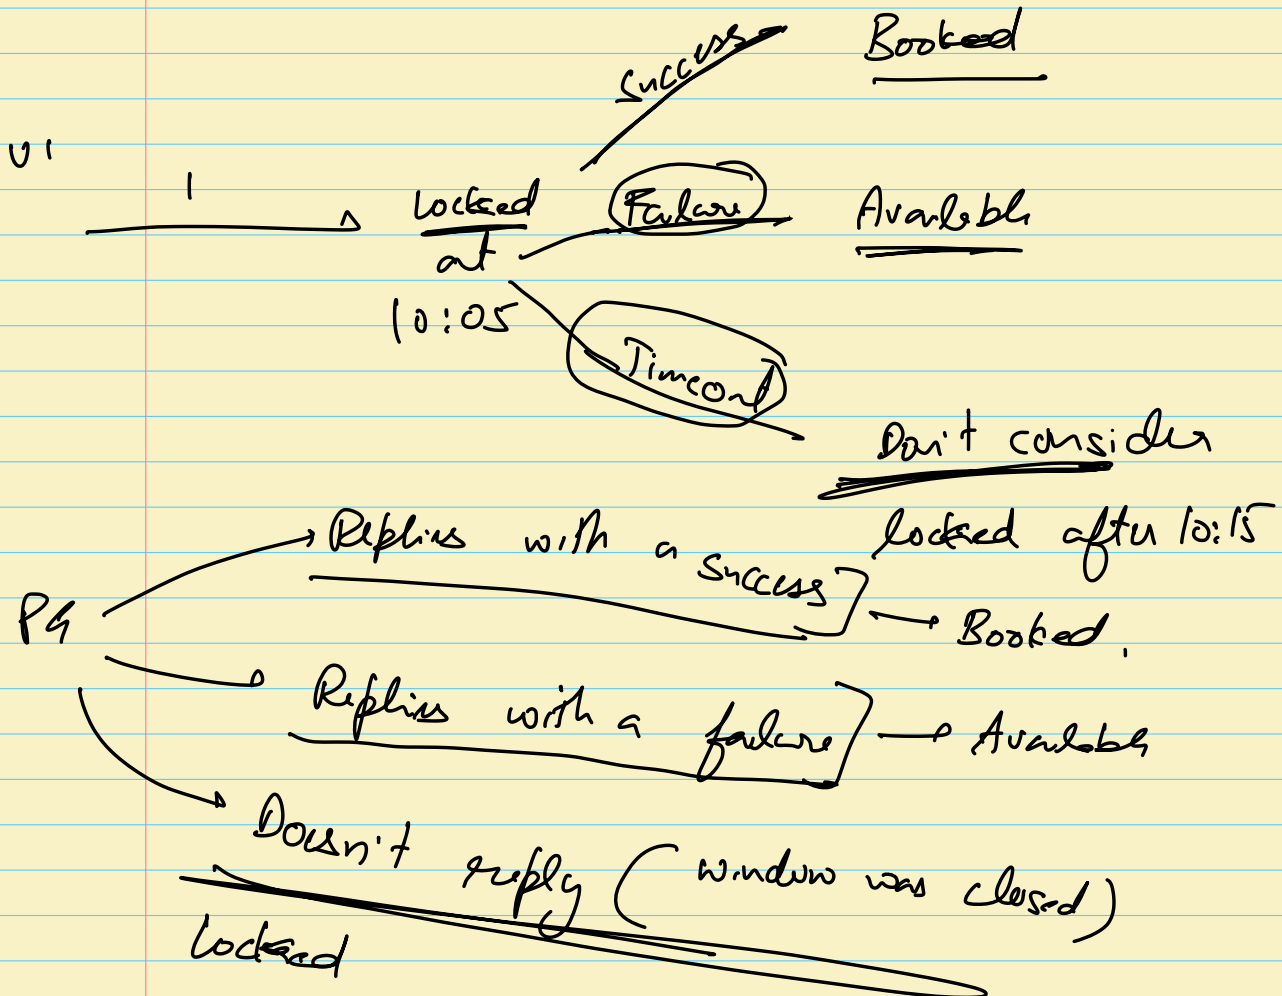 Success Booked
U1
1 Locked Failure Available
at
10:05
Timeout
Don't consider
locked after 10:15
Replies with a success
PG Booked.
Replies with a failure Available
Doesn't reply (window was closed)
Locked